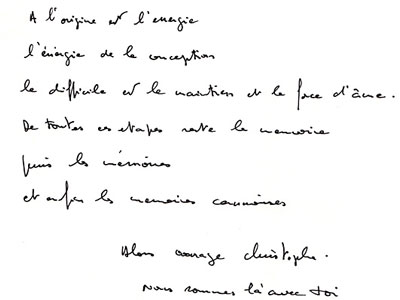 A l'origine est l'energie
l'énergie de la conception
le difficile est le maintien et la force d'âme.
De toutes ces etapes reste la memoire
puis les mémoires
et enfin les memoires communes
Alors courage christophe.
Nous sommes là avec toi